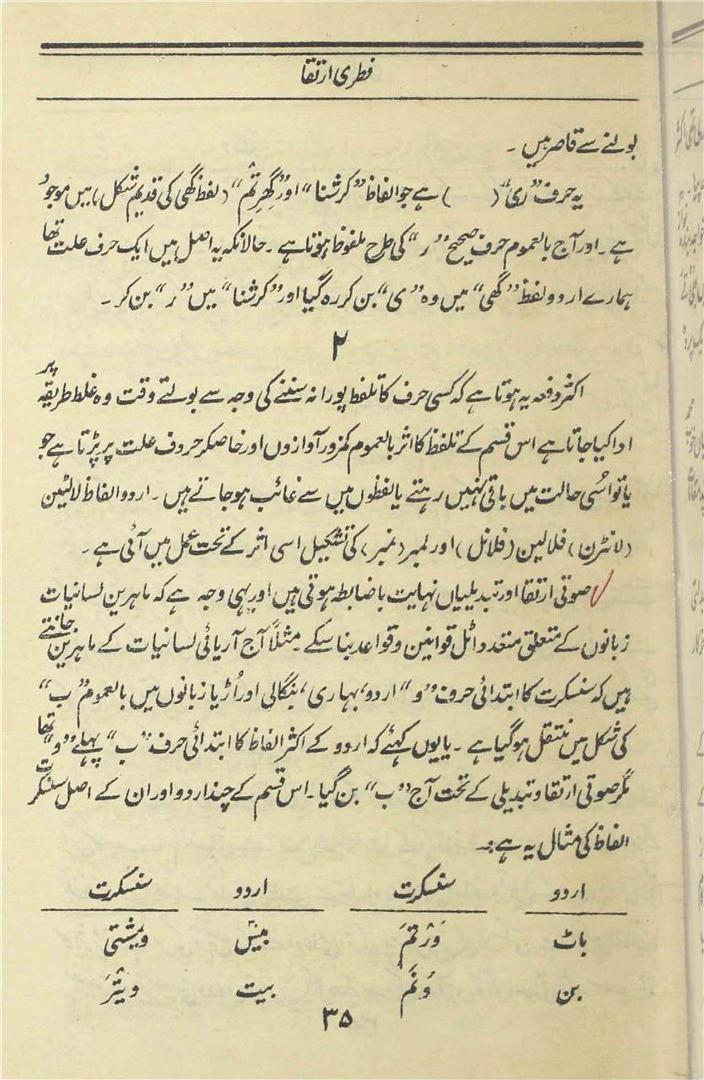 فطری ارتقا
بولنے سے قاصر ہیں ۔
یہ حرف "ری" ( ) ہے جو الفاظ "کرشنا" اور "گھرتم" (لفظ گھی کی قدیم شکل) میں موجود
ہے ۔ اور آج بالعموم حرف صحیح "ر" کی طرح ملفوظ ہوتا ہے ۔ حالانکہ یہ اصل میں ایک حرف علت تھا
ہمارے اردو لفظ "گھی" میں وہ "ی" بن کر رہ گیا اور "کرشنا" میں "ر" بن کر ۔
۲
اکثر دفعہ یہ ہوتا ہے کہ کسی حرف کا تلفظ پورا نہ سننے کی وجہ سے بولتے وقت وہ غلط طریقہ پر
ادا کیا جاتا ہے اس قسم کے تلفظ کا اثر بالعموم کمزور آوازوں اور خاصکر حروف علت پر پڑتا ہے جو
یا تو اسی حالت میں باقی نہیں رہتے یا لفظوں میں سے غائب ہو جاتے ہیں ۔ اردو الفاظ لالٹین
(لانٹرن) فلالین (فلانل) اور لمبر (نمبر) کی تشکیل اسی اثر کے تحت عمل میں آئی ہے ۔
صوتی ارتقا اور تبدیلیاں نہایت باضابطہ ہوتی ہیں اور یہی وجہ ہے کہ ماہرین لسانیات
زبانوں کے متعلق متعدد اٹل قوانین و قواعد بنا سکے ۔ مثلاً آج آریائی لسانیات کے ماہرین جانتے
ہیں کہ سنسکرت کا ابتدائی حرف "و" اردو، بہاری، بنگالی اور اُڑیا زبانوں میں بالعموم "ب"
کی شکل میں منتقل ہو گیا ہے ۔ یا یوں کہئے کہ اردو کے اکثر الفاظ کا ابتدائی حرف "ب" پہلے "و" تھا
مگر صوتی ارتقا و تبدیلی کے تحت آج "ب" بن گیا ۔ اس قسم کے چند اردو اور ان کے اصل سنسکرت
الفاظ کی مثال یہ ہے :۔
اردو سنسکرت اردو سنسکرت
باٹ وَرْتَمَ بیس ویشتی
بن وَنَم بیت ویتْرَ
۳۵